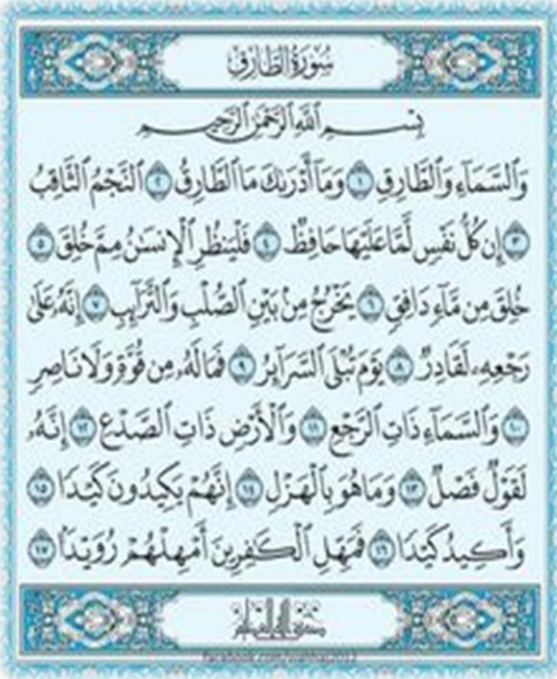 سُورَةُ الطَّارِقِ
بِسْمِ اللَّهِ الرَّحْمَٰنِ الرَّحِيمِ
وَالسَّمَاءِ وَالطَّارِقِ ١ وَمَا أَدْرَاكَ مَا الطَّارِقُ ٢ النَّجْمُ الثَّاقِبُ
٣ إِن كُلُّ نَفْسٍ لَّمَّا عَلَيْهَا حَافِظٌ ٤ فَلْيَنظُرِ الْإِنسَٰنُ مِمَّ خُلِقَ ٥
خُلِقَ مِن مَّاءٍ دَافِقٍ ٦ يَخْرُجُ مِن بَيْنِ الصُّلْبِ وَالتَّرَائِبِ ٧ إِنَّهُ عَلَىٰ
رَجْعِهِ لَقَادِرٌ ٨ يَوْمَ تُبْلَى السَّرَائِرُ ٩ فَمَا لَهُ مِن قُوَّةٍ وَلَا نَاصِرٍ
١٠ وَالسَّمَاءِ ذَاتِ الرَّجْعِ ١١ وَالْأَرْضِ ذَاتِ الصَّدْعِ ١٢ إِنَّهُ
لَقَوْلٌ فَصْلٌ ١٣ وَمَا هُوَ بِالْهَزْلِ ١٤ إِنَّهُمْ يَكِيدُونَ كَيْدًا ١٥
وَأَكِيدُ كَيْدًا ١٦ فَمَهِّلِ الْكَٰفِرِينَ أَمْهِلْهُمْ رُوَيْدًا ١٧